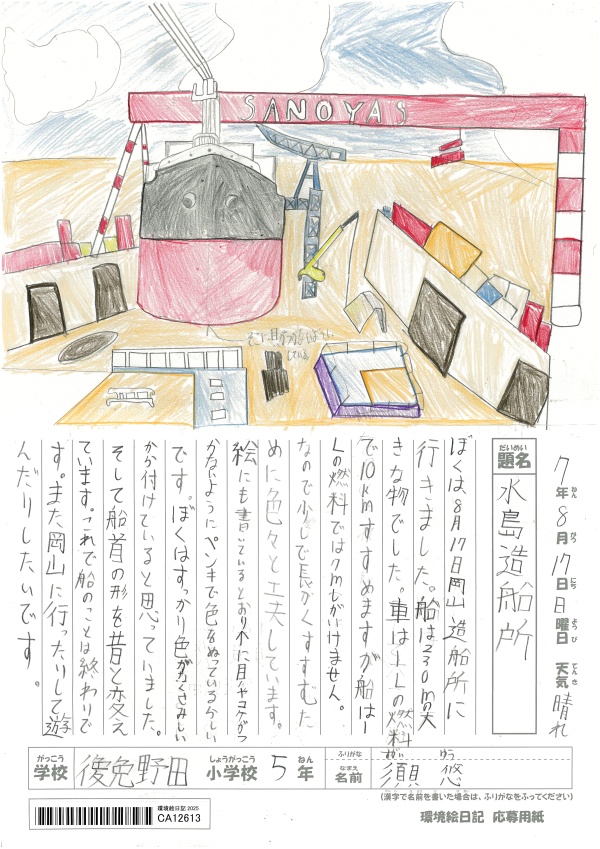 SANOYAS
そこに貝がつかないように
している
7年8月17日日曜日 天気晴れ
ねん がつ にち ようび てんき
だいめい
題名 水島造船所
ぼくは、8月17日岡山造船所に
行きました。船は230mの大
きな物でした。車は1Lの燃料
で10kmすすめますが船は1
Lの燃料では7mしかいけません。
なので少しで長くすすむた
めに色々と工夫しています。
絵にも書いているとおり下に貝やコケがつ
かないようにペンキで色をぬっているらしい
です。ぼくはすっかり色がなくさみしい
から付けていると思っていました。
そして船首の形を昔と変え
ています。これで船のことは終わりで
す。また岡山に行ったりして遊
んだりしたいです。
がっこう しょうがっこう ねん ふりがな ゆう
学校 後免野田 小学校 5年
なまえ
名前 須 悠
(漢字で名前を書いた場合は、ふりがなをふってください)
環境絵日記2025
CA12613
環境絵日記 応募用紙